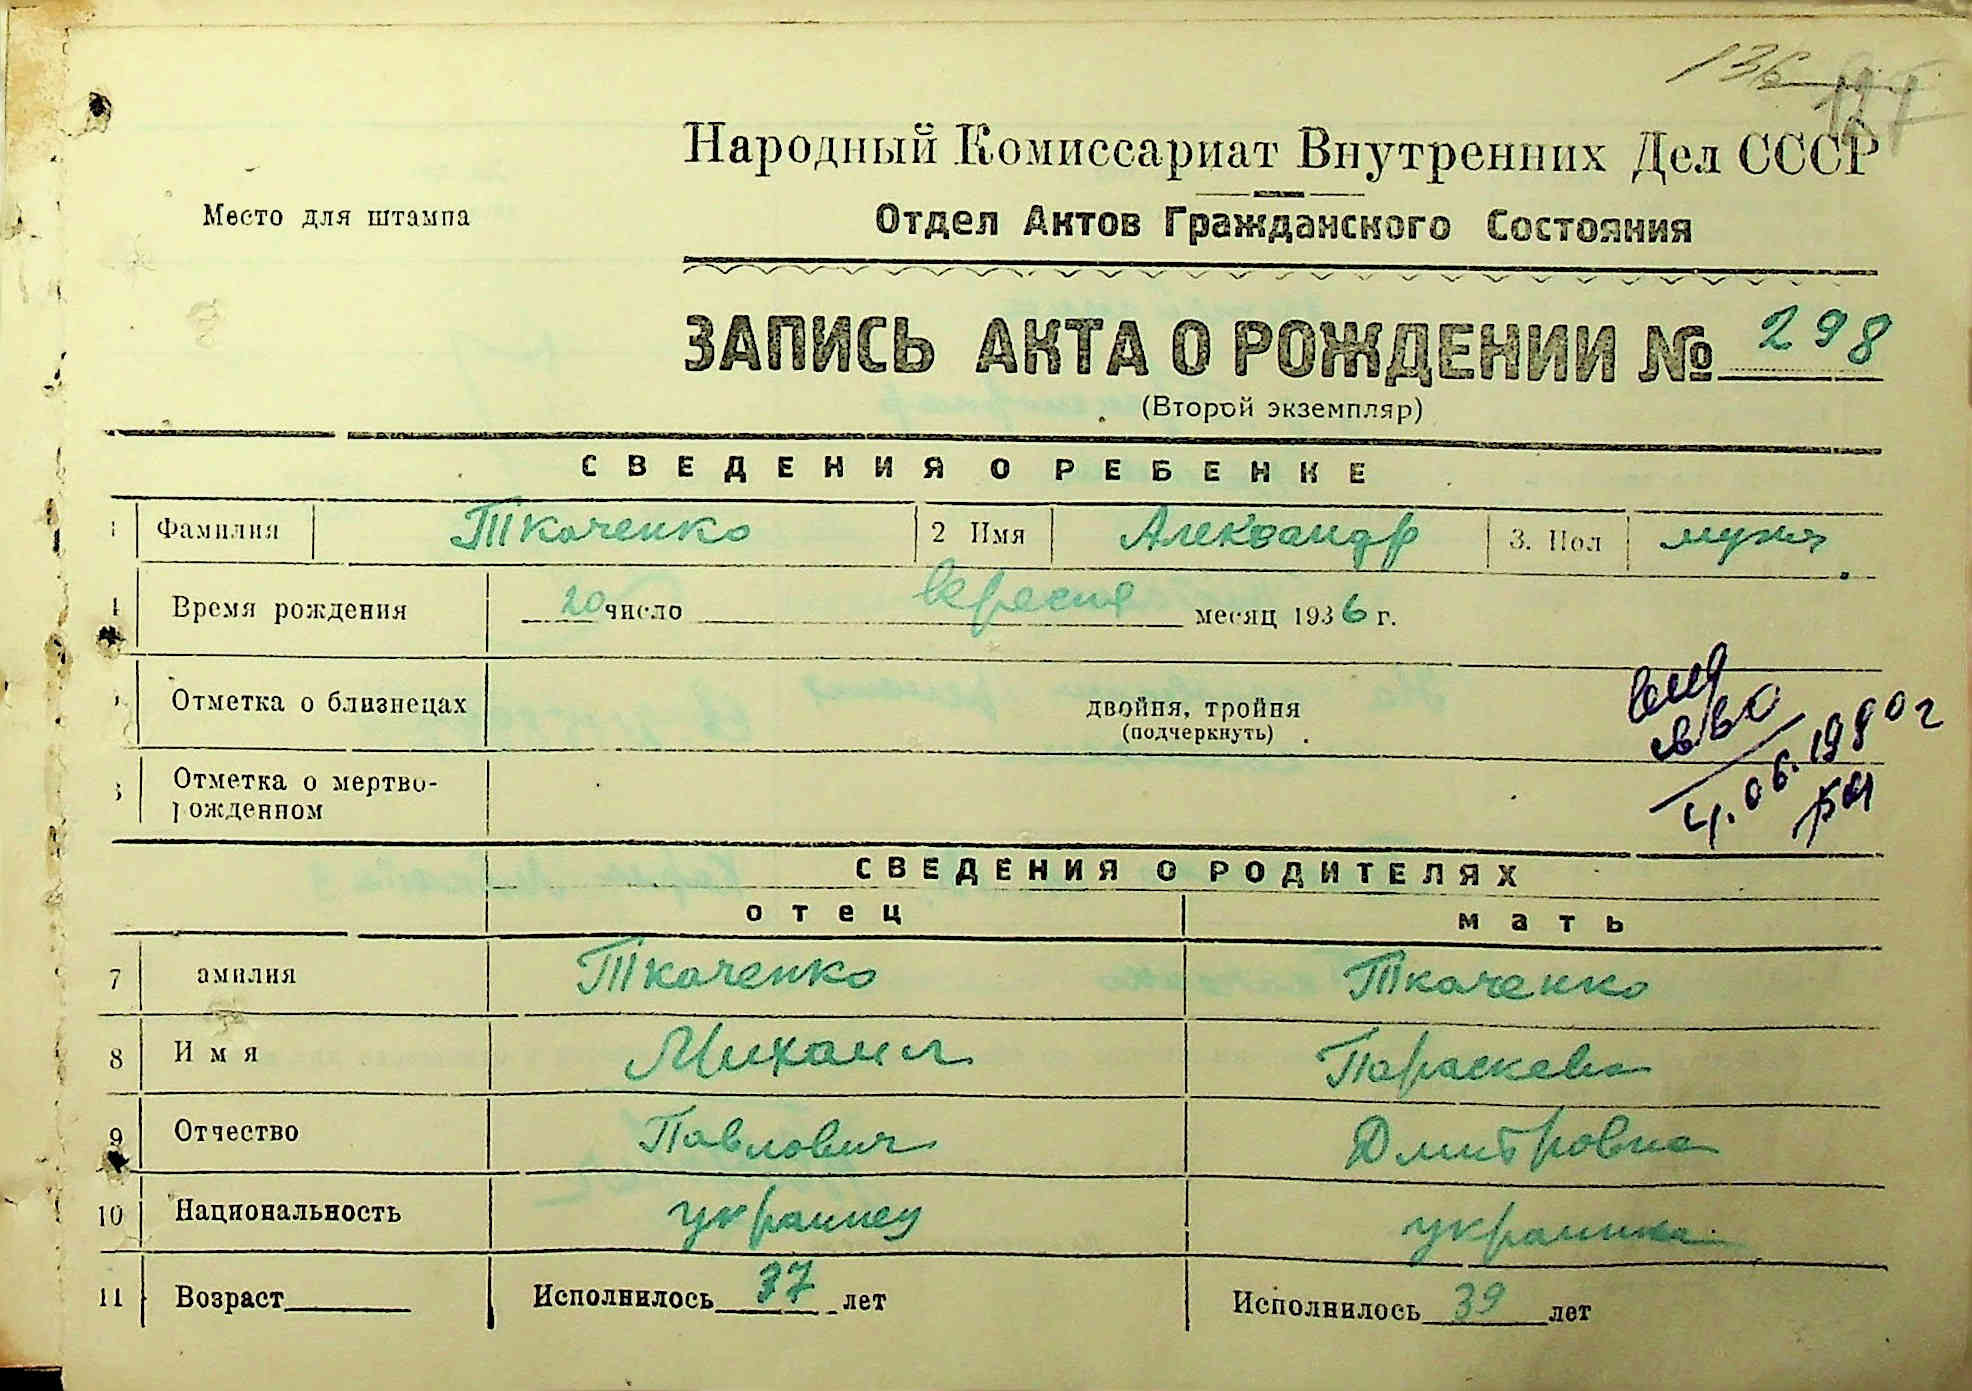 136
Народный Комиссариат Внутренних Дел СССР
Место для штампа
Отдел Актов Гражданского Состояния
ЗАПИСЬ АКТА О РОЖДЕНИИ № 298
(Второй экземпляр)
СВЕДЕНИЯ О РЕБЕНКЕ
1 Фамилия Ткаченко 2 Имя Александр 3. Пол мужч.
4 Время рождения 20 число вересня месяц 1936 г.
Отметка о близнецах двойня, тройня
(подчеркнуть)
Отметка о мертво-
рожденном
выд
св во
4.06.1980 г
СВЕДЕНИЯ О РОДИТЕЛЯХ
отец мать
7 амилия Ткаченко Ткаченко
8 Имя Михаил Параскева
9 Отчество Павлович Дмитровна
10 Национальность украинец украинка
11 Возраст Исполнилось 37 лет Исполнилось 39 лет